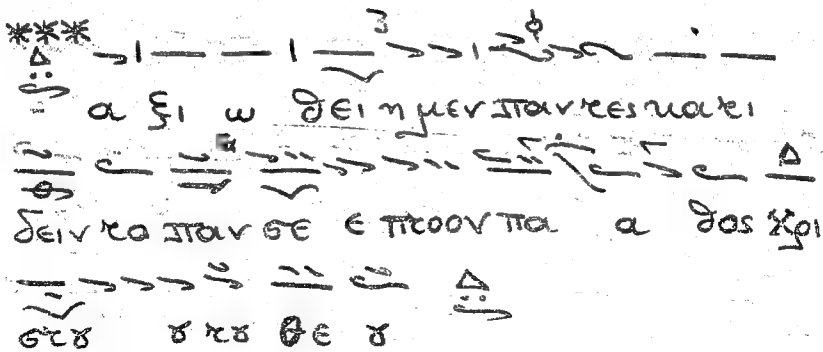 α ξι ω θει η μεν παντες κατι
δειν το παν σε ε πτοον πα α θος χρι
στȣ ȣ τȣ θε ȣ